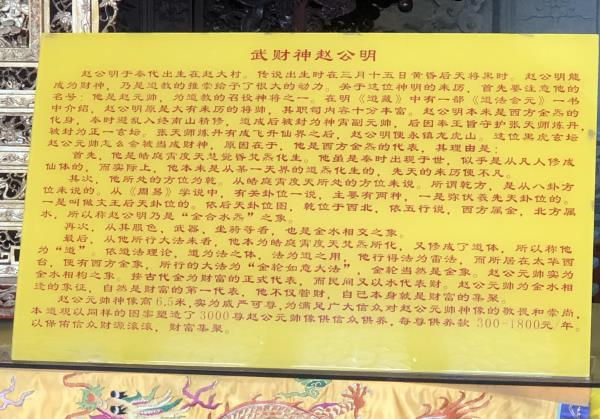 武财神赵公明
赵公明于秦代出生在赵大村。传说出生时在三月十五日黄昏后天将黑时。赵公明能
成为财神，乃是道教的推崇给予了很大的动力。关于这位神明的来历，首先要注意他的
名号：他是赵元帅，为道教的召役神将之一。在明《道藏》中有一部《道法会元》一书
中介绍，赵公明原是大有来历的将帅，其职司内容十分丰富。赵公明本来是西方金炁的
化身，秦时避乱入终南山精修，道成后被封为神霄副元帅，后因奉玉旨守护张天师炼丹，
被封为正一玄坛。张天师炼丹有成飞升仙界之后，赵公明便永镇龙虎山。这位黑虎玄坛
赵公元帅怎么会被当成财神，原因在于，他是西方金炁的代表，其理由是：
首先，他是皓庭霄度天慧觉昏梵炁化生。他虽是秦时出现于世，似乎是从凡人修成
仙体的，而实际上，他本来是从某一天界的道炁化生的，先天的来历便不凡。
其次，他所处的方位为乾。从皓庭霄度天所处的方位来说。所谓乾方，是从八卦方
位来说的。从《周易》学说中，有关卦位一说，主要有两种，一是弥伏羲先天卦位的。
一是叫做文王后天卦位的。依后天卦位图，乾位于西北，依五行说，西方属金，北方属
水，所以称赵公明乃是“金合水炁”之象。
再次，从其服色，武器，坐骑等看，也是金水相交之象。
最后，从他所行大法来看，他本为皓庭霄度天梵炁所化，又修成了道体，所以称他
为“道”。依道法理论，道为法之体，法为道之用，他行得法为雷法，而所居在太华西
台，便有西方金象，所行的大法为“金轮如意大法”，金轮当然是金象。赵公元帅实为
金水相构之象。按古代金为财富的正式代表，而民间又以水代表财。赵公元帅为金水相
迭的象征，自然是财富的第一代表，他不仅管财，自已本身就是财富的集聚。
赵公元帅神像高6.5米，实为威严可尊，为满足广大信众对赵公元帅神像的敬畏和崇尚，
本道观以同样的图案塑造了3000尊赵公元帅神像供信众供养，每尊供养款 300-1800元/年。
以保佑信众财源滚滚，财富集聚。